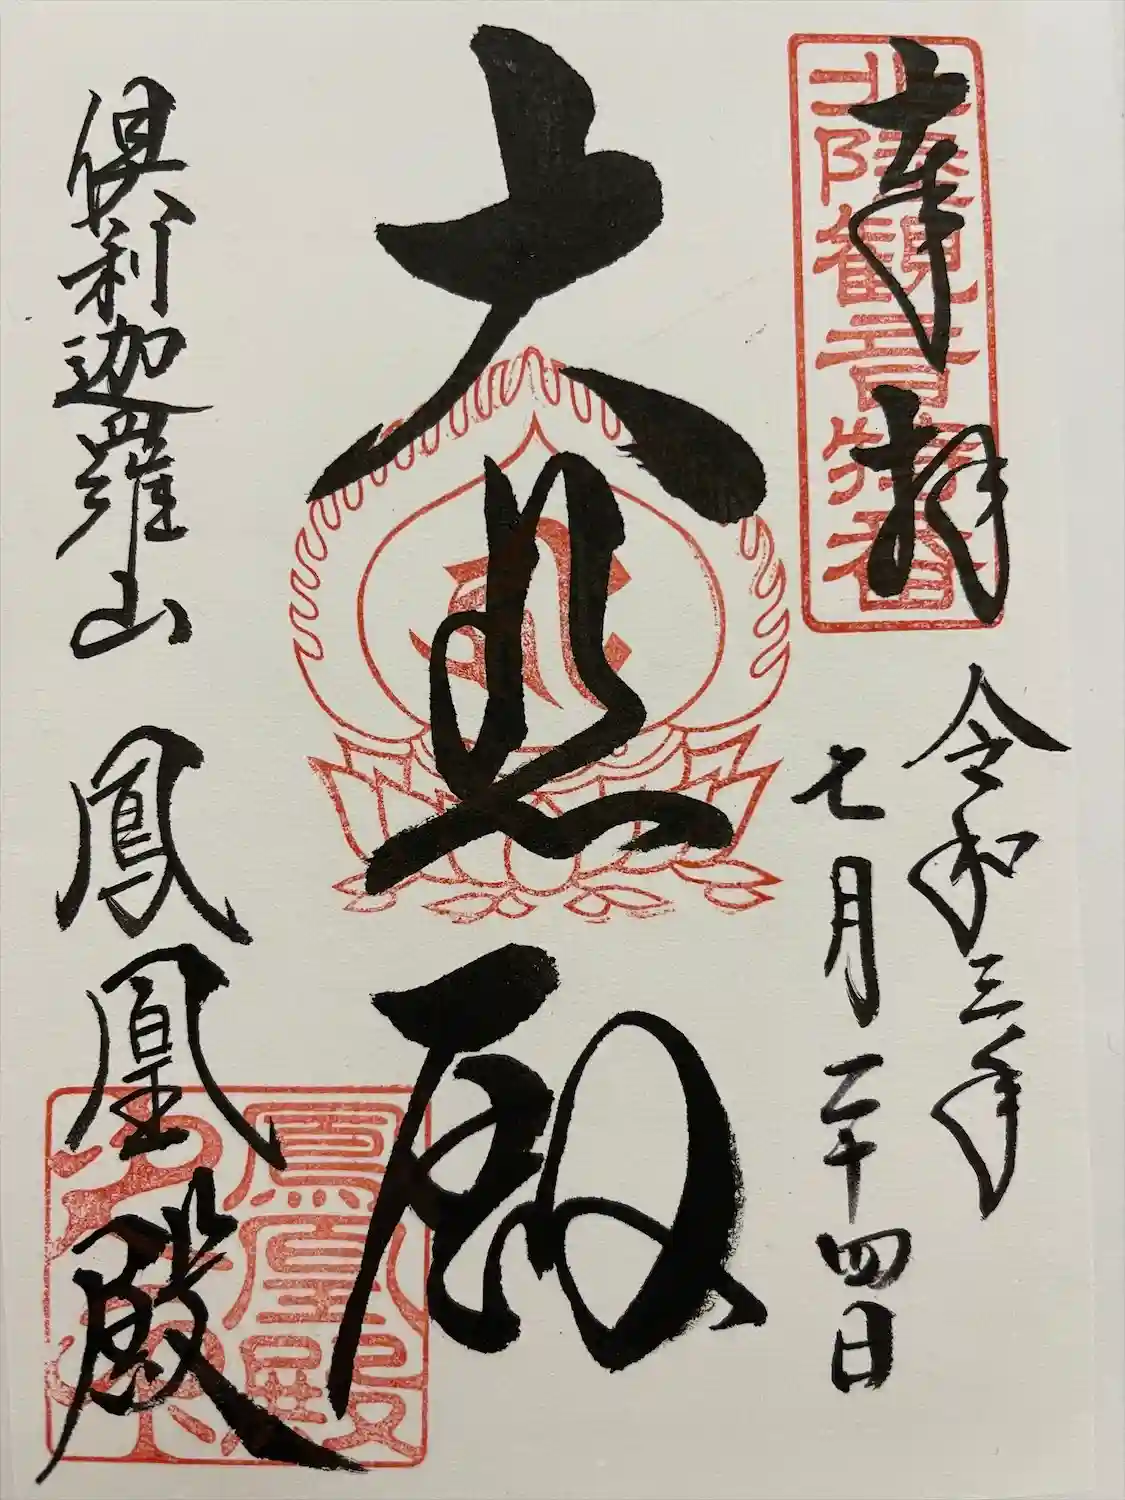 奉拝
北陸観音特番
令和三年
七月二十四日
大悲殿
倶利迦羅山
鳳凰殿
鳳凰殿